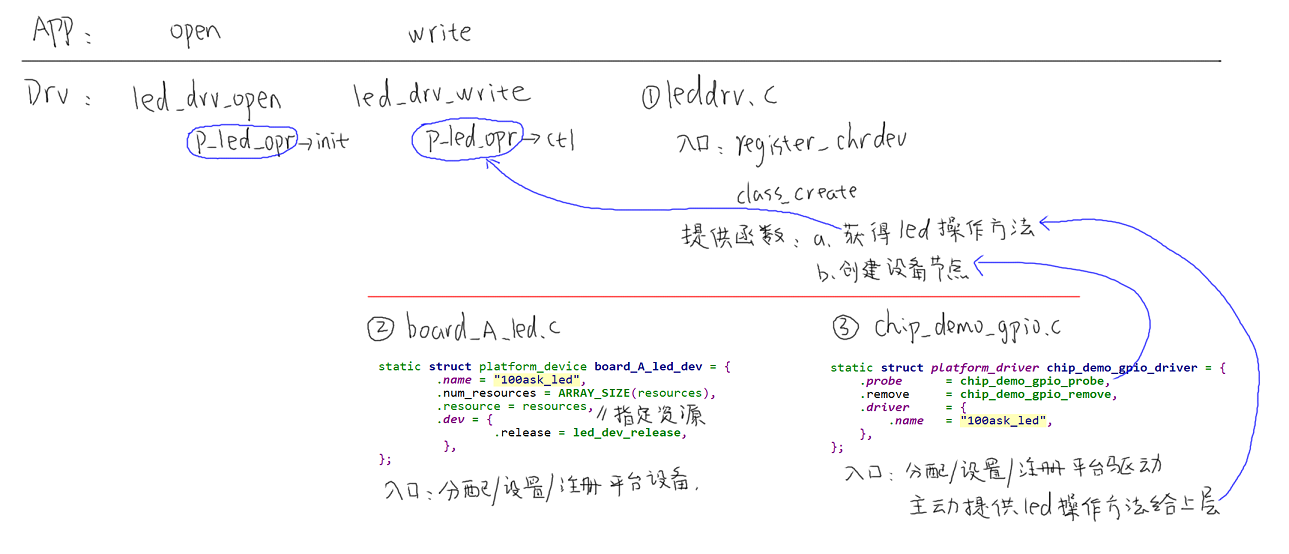 APP: open write
Drv: led_drv_open led_drv_write ①leddrv.c
p_led_opr→init p_led_opr→ctl 入口: register_chrdev
class_create
提供函数: a. 获得led操作方法
b.创建设备节点
② board_A_led.c
static struct platform_device board_A_led_dev = {
.name = "100ask_led",
.num_resources = ARRAY_SIZE(resources),
.resource = resources, //指定资源
.dev = {
.release = led_dev_release,
},
};
入口: 分配/设置/注册平台设备.
③ chip_demo_gpio.c
static struct platform_driver chip_demo_gpio_driver = {
.probe = chip_demo_gpio_probe,
.remove = chip_demo_gpio_remove,
.driver = {
.name = "100ask_led",
},
};
入口: 分配/设置/注册平台驱动
主动提供led操作方法给上层